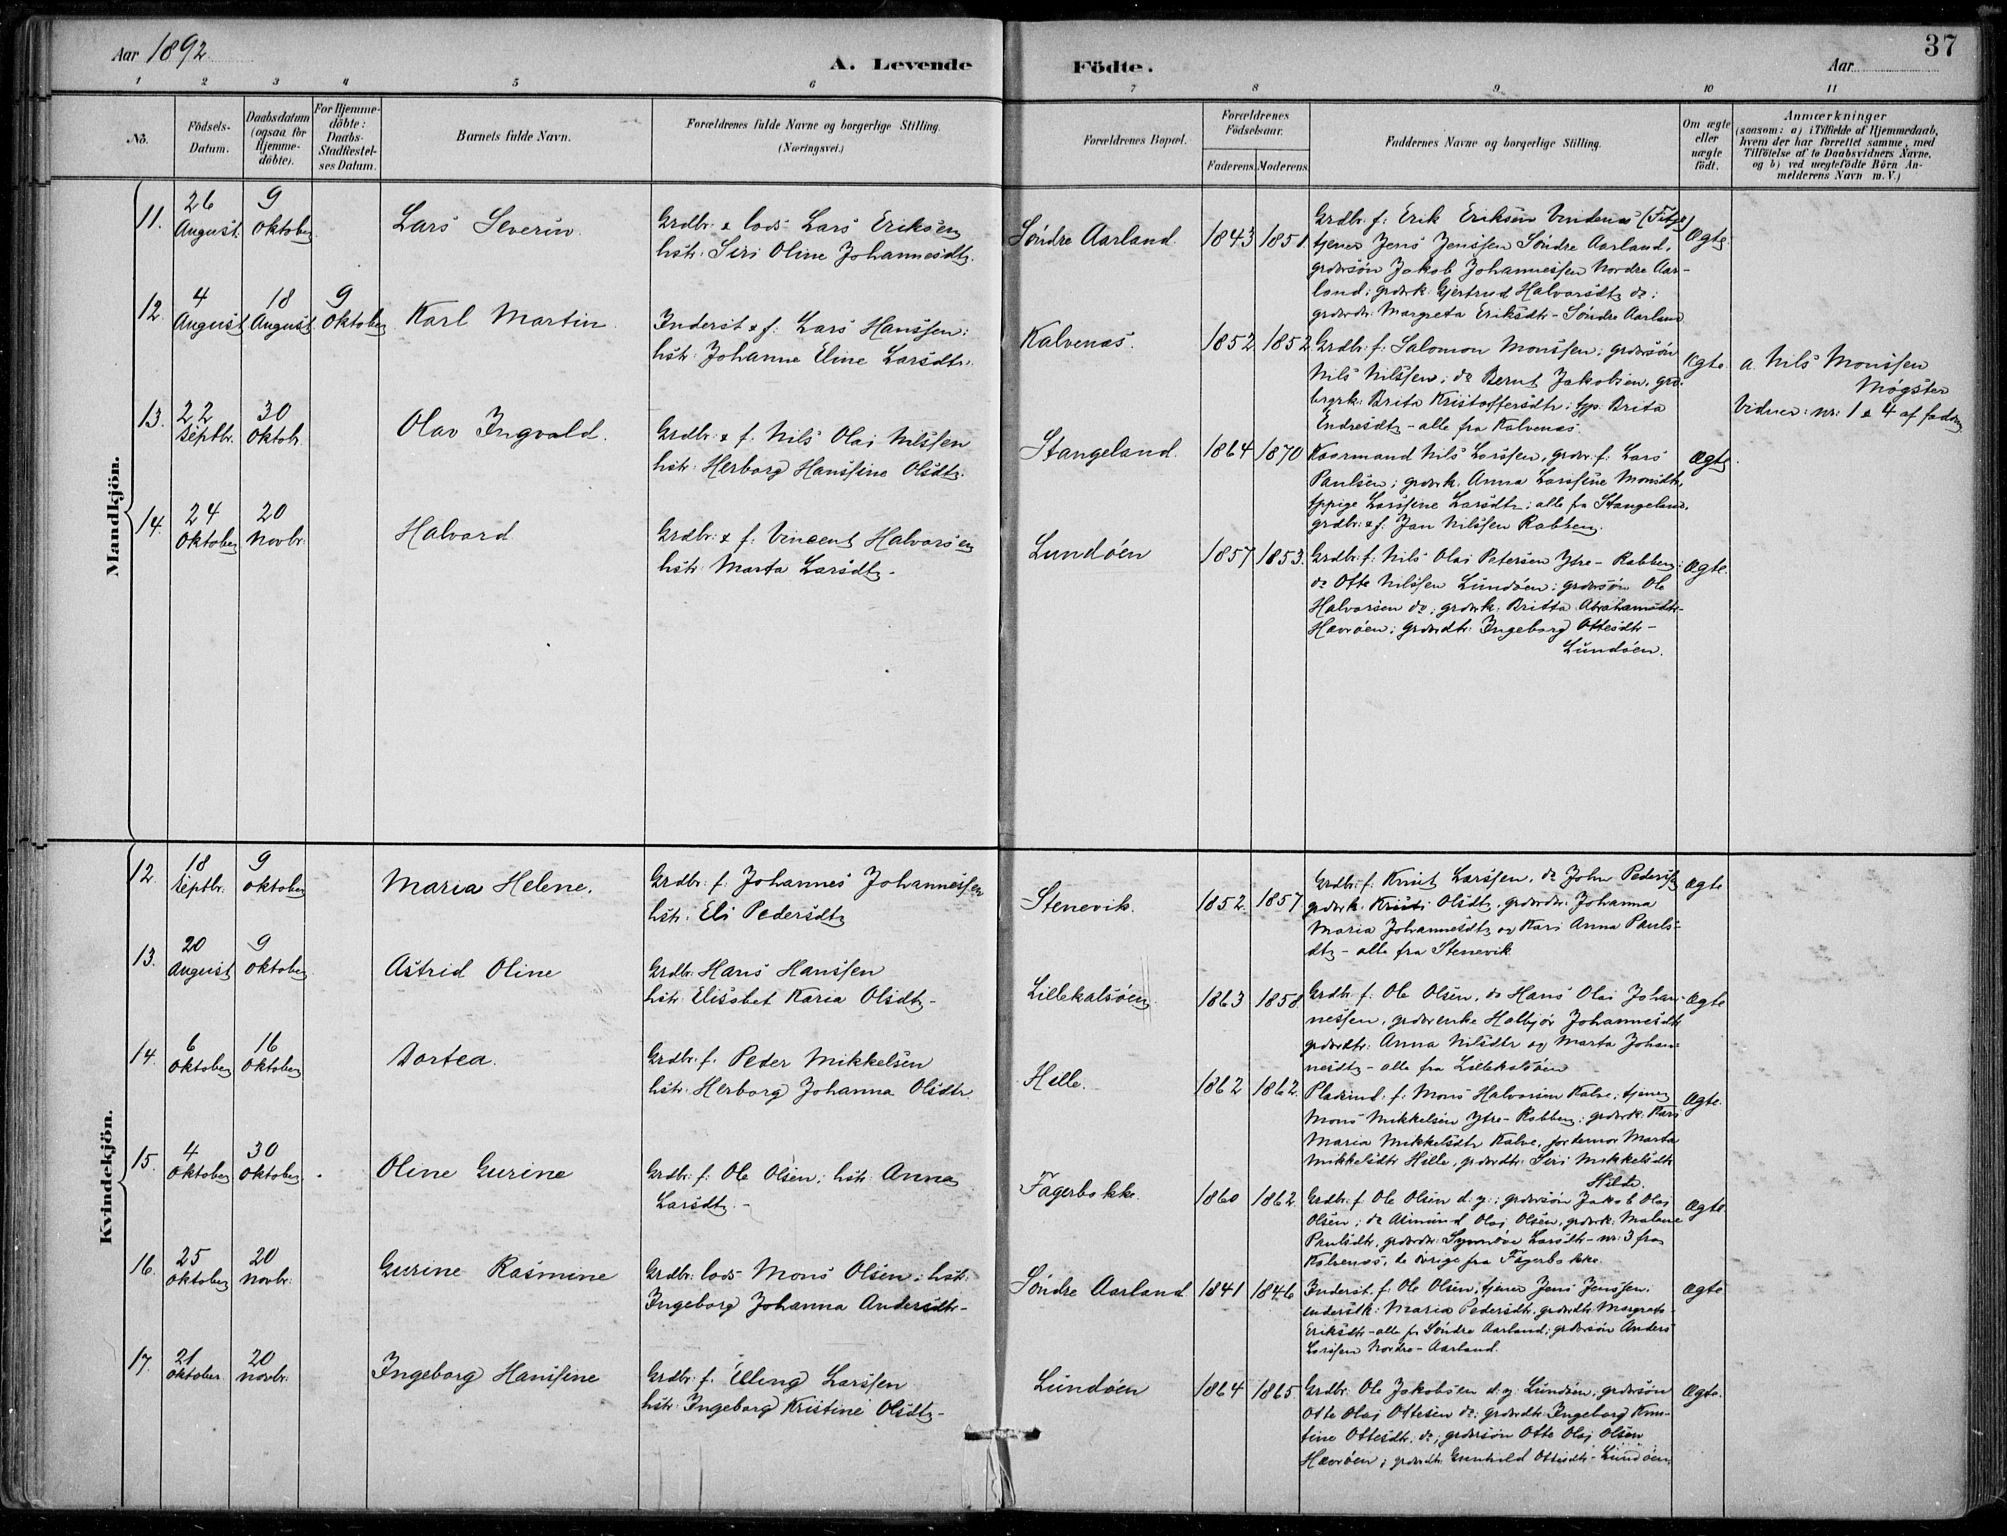 Aar 1892
A. Levende Födte.
Aar
37
1 2 3 4 5 6 7 8 9 10 11
No.
Födsels-Datum.
Daabsdatum (ogsaa for Hjemme-döbte).
For Hjemme-döbte: Daabs-Stadfæstel-ses Datum.
Barnets fulde Navn.
Forældrenes fulde Navne og borgerlige Stilling. (Næringsvei.)
Forældrenes Bopæl.
Forældrenes Födselsaar.
Faderens. Moderens.
Faddernes Navne og borgerlige Stilling.
Om ægte eller uægte födt.
Anmærkninger
(saasom: a) i Tilfælde af Hjemmedaab,
hvem der har forrettet samme, med
Tilföielse af to Daabsvidners Navne,
og b) ved uægtefödte Börn An-
melderens Navn m. V.)
Mandkjön.
11. 26 August. 9 Oktober Lars Severin.
Grdbr. & lods Lars Eriksen
hstr. Siri Oline Johannesdtr.
Söndre Aarland. 1843 1851.
Grdbr. f: Erik Eriksen Vindenes (Fitje)
tjener Jens Jenssen Söndre Aarland,
grdbrsön Jakob Johannessen Nordre Aar-
land; grdbrk. Gjertrud Halvorsdtr do;
grdbrdr. Margreta Eriksdtr - Söndre Aarland
Ægte
12. 4 August 18 August 9 Oktober Karl Martin
Inderst & f: Lars Hanssen;
hstr. Johanne Eline Larsdtr.
Kalvenes. 1852 1852
Grdbr. f: Salomon Monssen; grdbrsön
Nils Nilssen; do Bernt Jakobsen, grd-
brgrk: Brita Kristoffersdtr; Brita
Endresdtr - alle fra Kalvenes.
Ægte
a. Nils Monssen
Møgster
Vidner: nr: 1 & 4 af faddrne
13. 22 Septbr. 30 Oktobr. Olav Ingvald.
Grdbr. & f. Nils Olai Nilssen
hstr. Herborg Hanssine Olsdtr.
Stangeland. 1864 1870
Kaarmand Nils Larssen, grdbr. f: Lars
Paulsen; grdbrk. Anna Larssine Monsdtr,
Larssine Larsdtr; alle fra Stangeland.
grdbr. & f. Jan Nilssen Rabben.
Ægte
14. 24 Oktober 20 Novbr. Halvard
Grdbr. & f. Vincent Halvorsen
hstr. Marta Larsdtr -
Lundöen 1857 1853.
Grdbr. f: Nils Olai Petersen Ytre-Rabben;
do Otte Nilssen Lundöen; grdbrsön Ole
Halvorsen do; grdbrk. Britta Abrahamsdtr -
Havröen; grdbrdtr. Ingeborg Ottesdtr -
Lundöen.
Ægte.
Kvindekjön.
12. 18 Septbr. 9 Oktober Maria Helene.
Grdbr. f. Johannes Johannessen
hstr. Eli Pedersdtr
Stenevik. 1852. 1857
Grdbr. f. Knut Larssen, do John Pedersen
grdbrk. Kristi Olsdtr, grdbrdr. Johanna
Maria Johannesdtr og Kari Anna Pauls-
dtr - alle fra Stenevik
Ægte
13. 20 August 9 Oktober Astrid Oline
Grdbr. Hans Hanssen
hstr. Elisabet Karia Olsdtr -
Lillekalsöen. 1863 1858.
Grdbr. f. Ole Olsen, do Hans Olai Johan-
nessen, grdbrenke Halbjör Johannesdtr
grdbrdtr. Anna Nilsdtr og Marta Johan-
nesdtr - alle fra Lillekalsöen
Ægte
14. 6 Oktober 16 Oktober Dortea.
Grdbr. f. Peder Mikkelsen
hstr. Herborg Johanna Olsdtr.
Hille. 1862 1862.
Pladsind. f. Mons Halvorsen Kalve, tjener
Mons Mikkelsen Ytre-Rabben; grdbrk. Kari
Maria Mikkelsdtr Kalve, jordemor Marta
Mikkelsdtr Hille, grdbrdtr. Siri Mikkelsdtr
Hilde.
Ægte.
15. 4 Oktober 30 Oktober. Oline Gurine
Grdbr. f. Ole Olsen; hstr. Anna
Larsdtr. -
Fagerbakke. 1860 1862.
Grdbr. f. Ole Olsen d. y.; grdbrsön Jakob Olai
Olsen; do Asmund Olai Olsen, grdbrk. Malene
Paulsdtr, grdbrdr. Synnöve Larsdtr - nr. 3 fra
Kalvenes, de övrige fra Fagerbakke.
Ægte.
16. 25 Oktober 20 Novbr. Gurine Rasmine
Grdbr. lods Mons Olsen; hstr.
Ingeborg Johanna Andersdtr -
Söndre Aarland 1841 1846
Inderst. f. Ole Olsen, tjener Jens Jenssen,
Maria Pedersdtr, grdbrdtr. Margrete
Eriksdtr - alle fr Söndre Aarland; grdbrsön Anders
Larssen Nordre-Aarland.
Ægte
17. 21 Oktober. 20 Novbr. Ingeborg Hanssine
Grdbr. f. Elling Larssen
hstr. Ingeborg Kristine Olsdtr -
Lundöen 1864 1865
Grdbr. Ole Jakobsen d. y. Lundöen, grdbrsön
Otte Olai Ottesen do; grdbrdtr. Ingeborg
Ottesdtr. do; grdbrsön Otte Olai Olsen
Havröen; grdbrdtr. Gunhild Ottesdtr - Lundöen
Ægte.